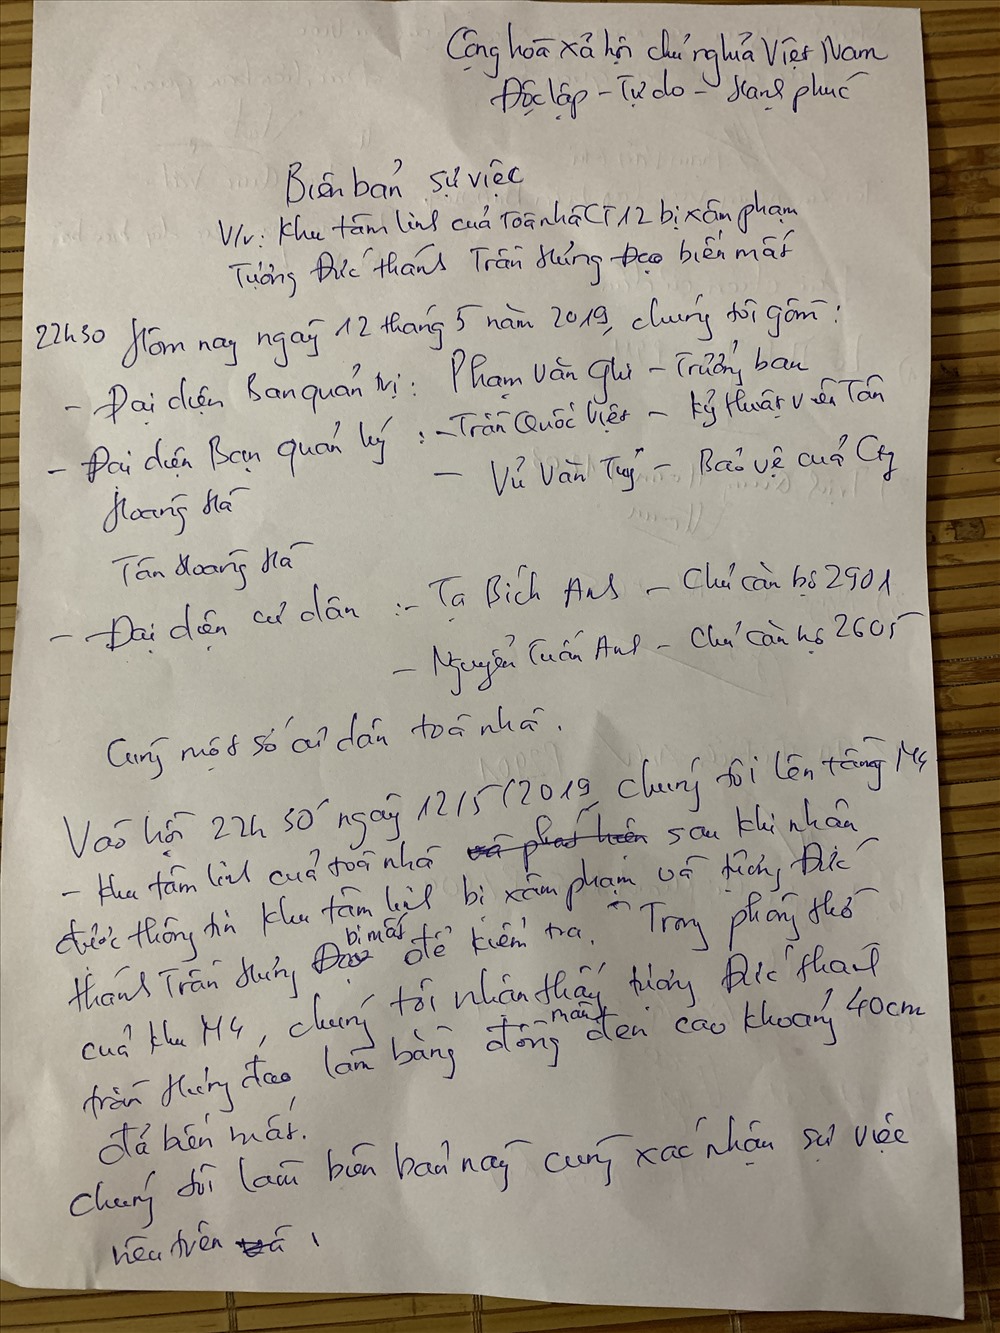 Cộng hoà xã hội chủ nghĩa Việt Nam
Độc lập - Tự do - Hạnh phúc
Biên bản sự việc
V/v: Khu tâm linh của toà nhà CT12 bị xâm phạm
Tượng Đức thánh Trần Hưng Đạo biến mất
22h30 Hôm nay ngày 12 tháng 5 năm 2019, chúng tôi gồm:
- Đại diện Ban quản trị: Phạm Văn Ghi - Trưởng ban
- Đại diện Ban quản lý : - Trần Quốc Việt - Kỹ thuật viên Tân
Hoàng Hà - Vũ Văn Tuý - Bảo vệ của Cty
Tân Hoàng Hà
- Đại diện cư dân :- Tạ Bích Anh - Chủ căn hộ 2901
- Nguyễn Tuấn Anh - Chủ căn hộ 2605
Cùng một số cư dân toà nhà.
Vào hồi 22h30 ngày 12/5/2019 chúng tôi lên tầng M4
- Khu tâm linh của toà nhà và phát hiện sau khi nhận
được thông tin khu tâm linh bị xâm phạm và tượng Đức
thánh Trần Hưng Đạo bị mất để kiểm tra. Trong phòng thờ
của khu M4, chúng tôi nhận thấy tượng Đức thánh
trần Hưng đạo làm bằng đồng màu đen cao khoảng 40cm
đã biến mất.
Chúng tôi làm biên bản này cùng xác nhận sự việc
nêu trên và.